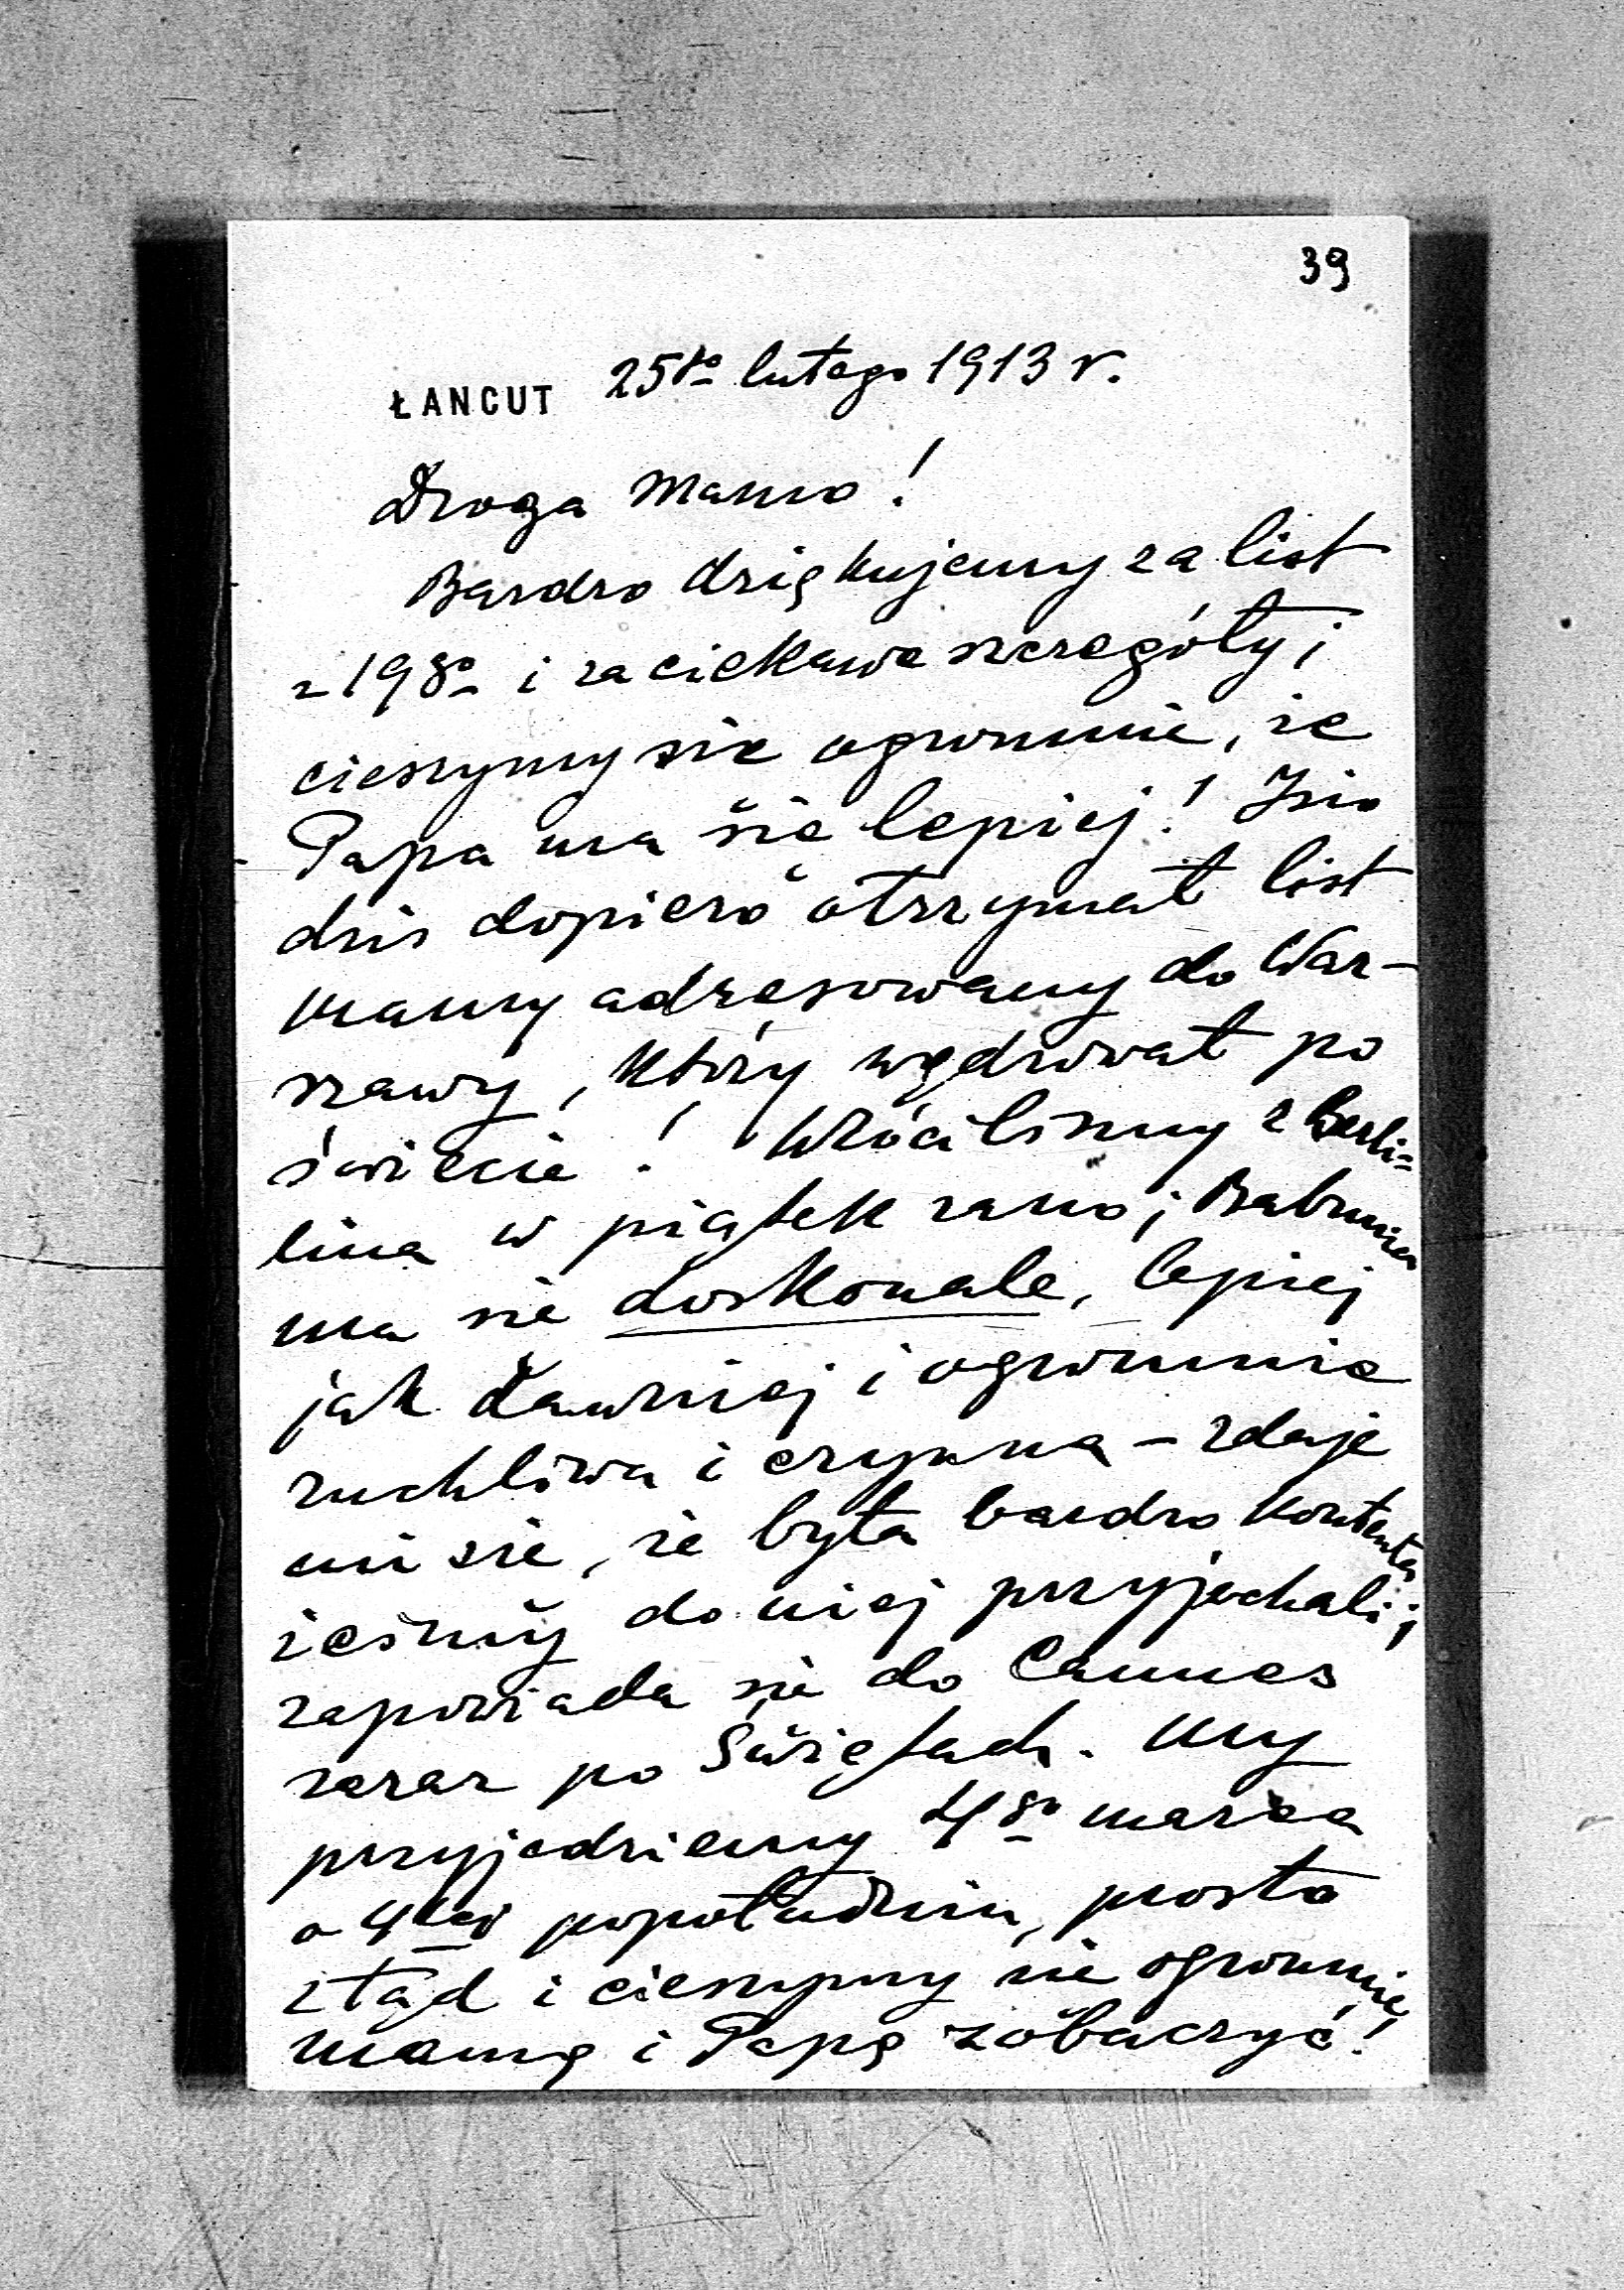 39
ŁANCUT 25go lutego 1913 r.
Droga Mamo!
Bardzo dziękujemy za list
z 19go i za ciekawe szczegóły i
cieszymy sie ogromnie, że
Papa ma się lepiej! Izio
dziś dopiero otrzymał list
Mamy adresowany do War-
szawy, który wędrował po
świecie! Wróciliśmy z Berli=
lina w piątek rano; Babunia
ma sie doskonale, lepiej
jak dawniej i ogromnie
ruchliwa i czynna - zdaje
mi sie, że była bardzo kontenta
żeśmy do niej przyjechali;
zapowiada sie do Cannes
zaraz po Świętach. My
przyjedziemy 4go marca
o 4tej popołudniu, prosto
ztąd i cieszymy sie ogromnie
Mamę i Papę zobaczyć!